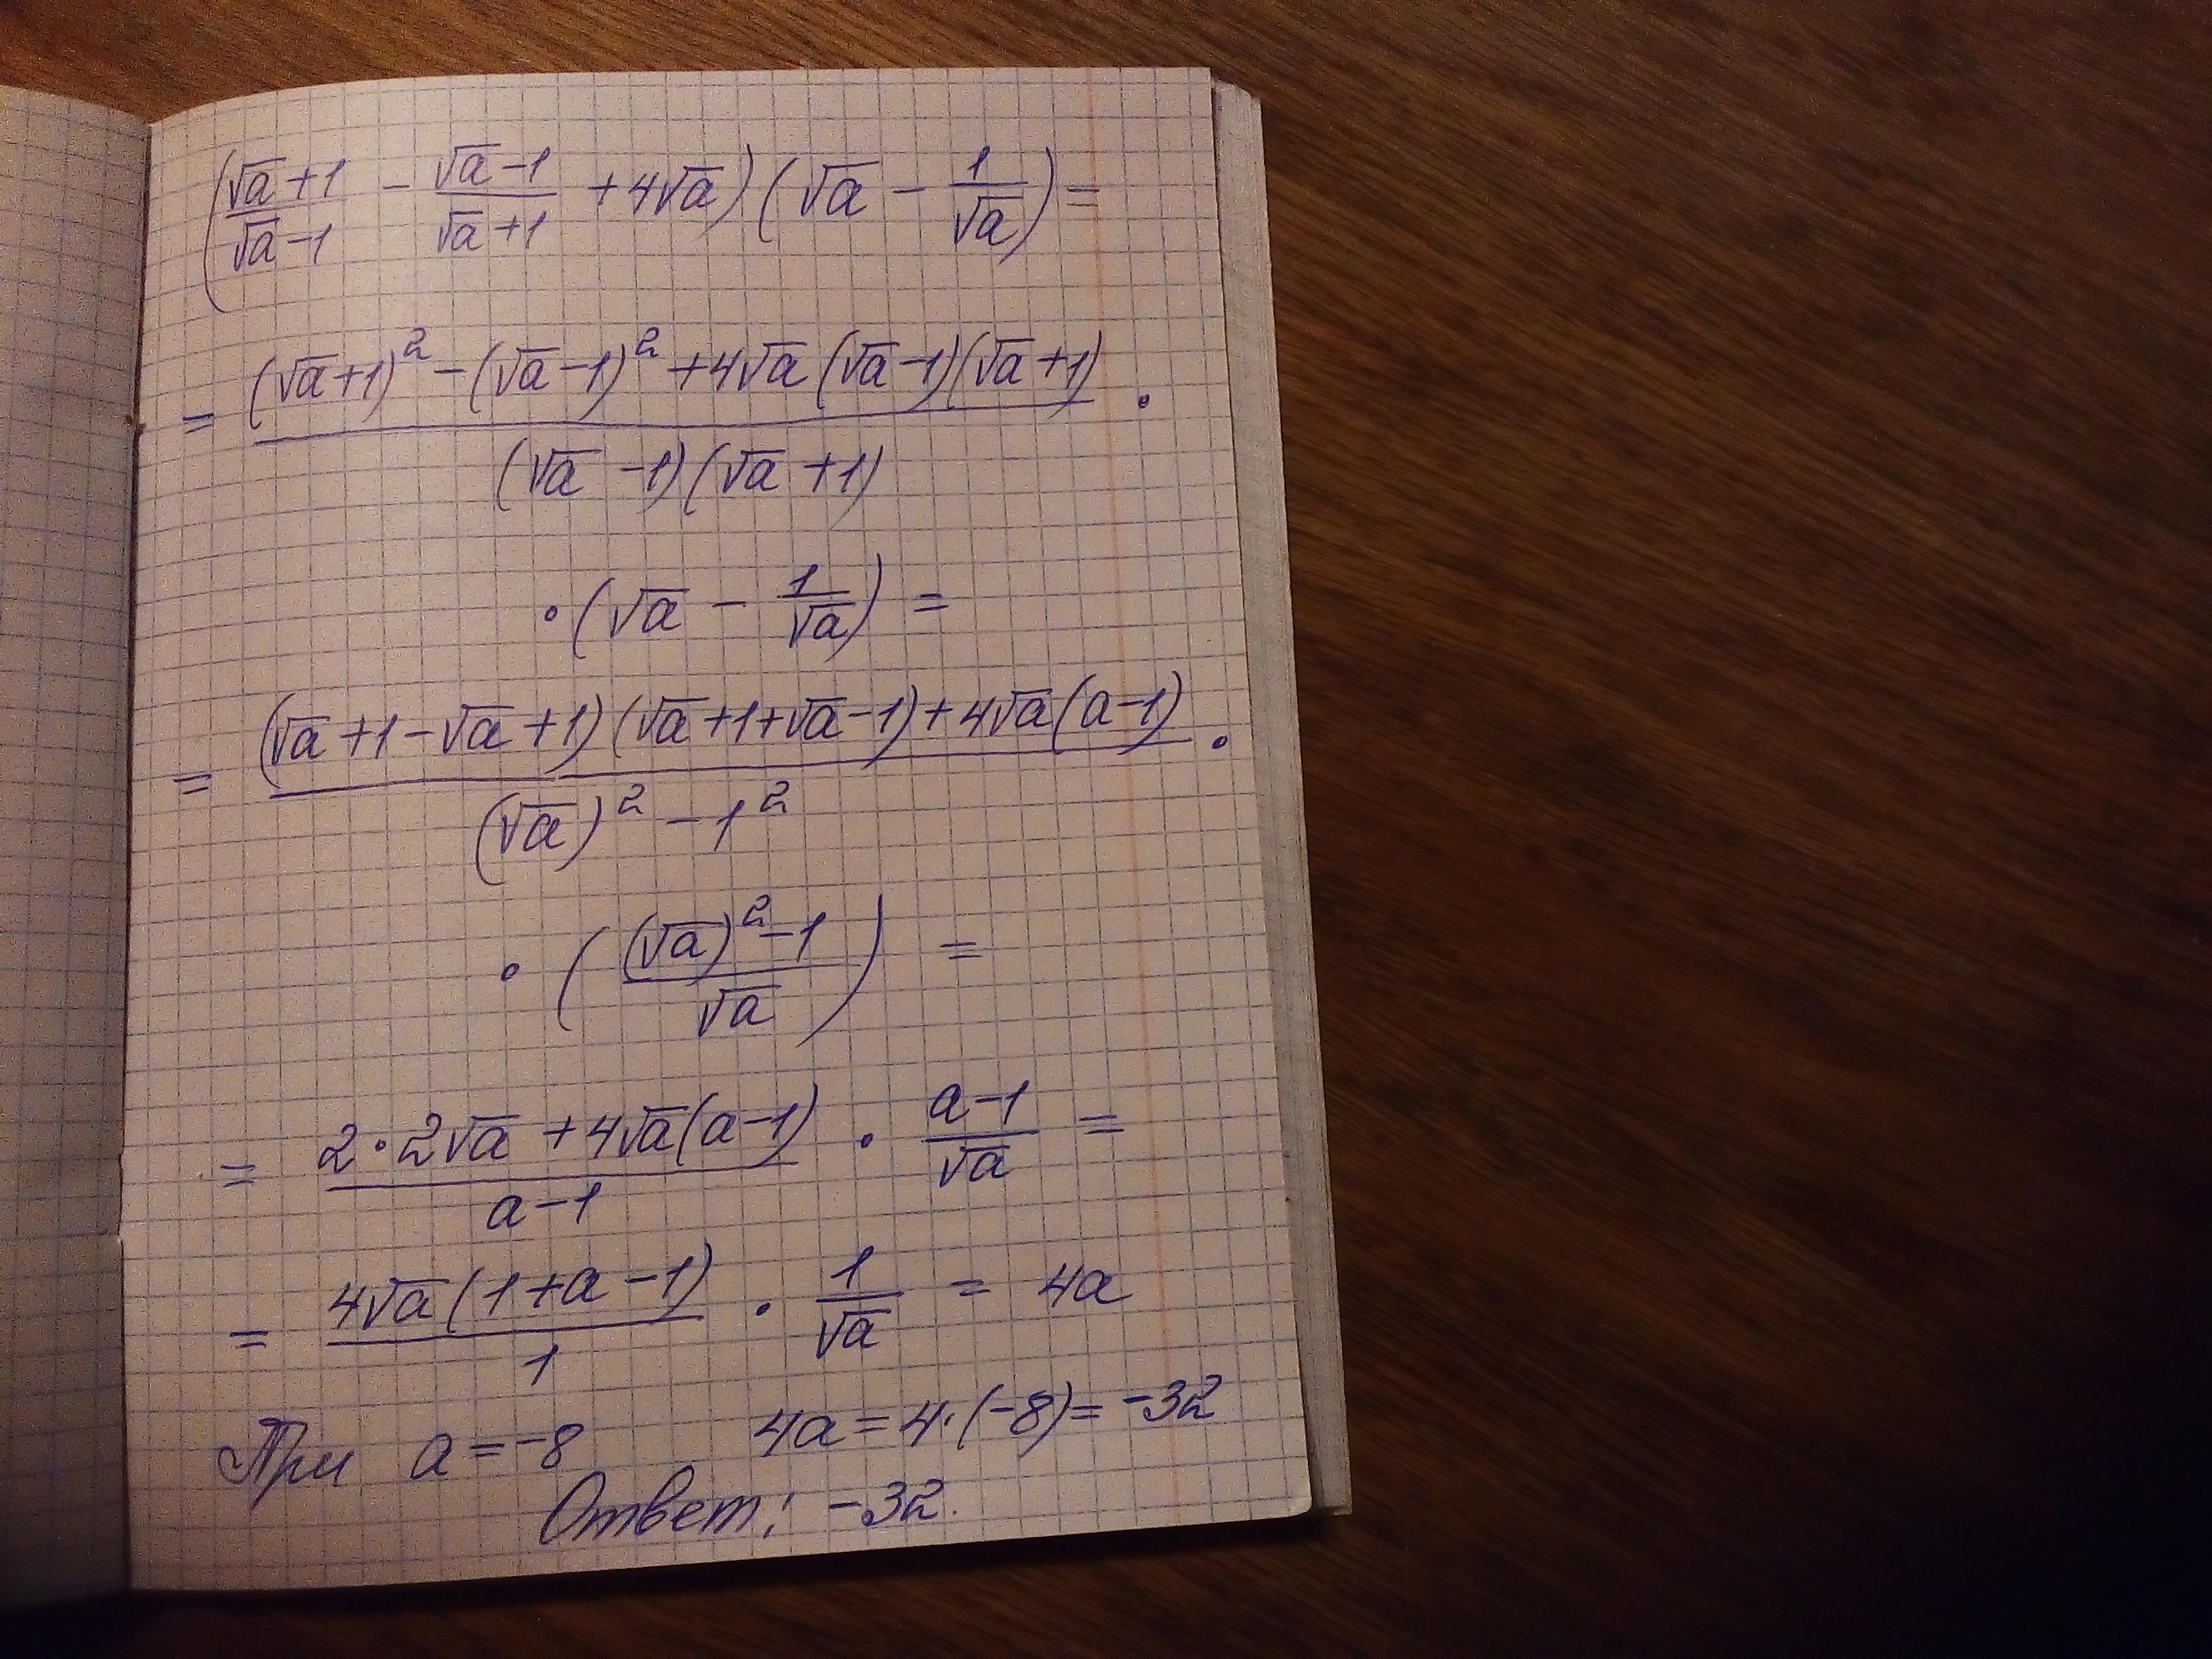 (√a+1/√a-1 - √a-1/√a+1 + 4√a)(√a - 1/√a) =
= (√a+1)² - (√a-1)² + 4√a(√a-1)(√a+1) / (√a-1)(√a+1) ·
· (√a - 1/√a) =
= (√a+1-√a+1)(√a+1+√a-1)+4√a(a-1) / (√a)² - 1² ·
· ((√a)²-1/√a) =
= 2·2√a + 4√a(a-1) / a-1 · a-1/√a =
= 4√a(1+a-1) / 1 · 1/√a = 4a
При a = -8 4a = 4·(-8) = -32
Ответ: -32.